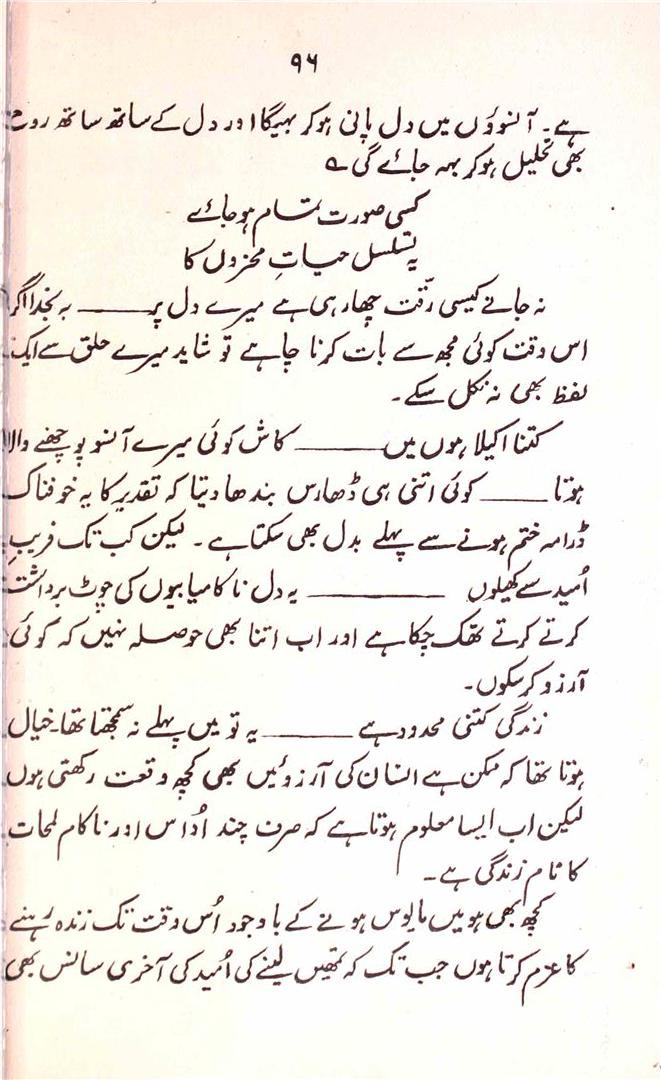 ۹۶
ہے۔ آنسوؤں میں دل پانی ہوکر بہیگا اور دل کے ساتھ ساتھ روح
بھی تحلیل ہوکر بہہ جائے گی ؎
کسی صورت تمام ہو جائے
یہ تسلسل حیاتِ محزوں کا
نہ جانے کیسی رقّت چھا رہی ہے میرے دل پر ــــــــ بہ بخدا اگر
اس وقت کوئی مجھ سے بات کرنا چاہے تو شاید میرے حلق سے ایک
لفظ بھی نہ نکل سکے۔
کتنا اکیلا ہوں میں ــــــــ کاش کوئی میرے آنسو پوچھنے والا
ہوتا ــــــــ کوئی اتنی ہی ڈھارس بندھا دیتا کہ تقدیر کا یہ خوفناک
ڈرامہ ختم ہونے سے پہلے بدل بھی سکتا ہے۔ لیکن کب تک فریبِ
اُمید سے کھیلوں ــــــــ یہ دل ناکامیابیوں کی چوٹ برداشت
کرتے کرتے تھک چکا ہے اور اب اتنا بھی حوصلہ نہیں کہ کوئی
آرزو کرسکوں۔
زندگی کتنی محدود ہے ــــــــ یہ تو میں پہلے نہ سمجھتا تھا۔ خیال
ہوتا تھا کہ ممکن ہے انسان کی آرزوئیں بھی کچھ وقعت رکھتی ہوں
لیکن اب ایسا معلوم ہوتا ہے کہ صرف چند اُداس اور ناکام لمحات
کا نام زندگی ہے۔
کچھ بھی ہو میں مایوس ہونے کے باوجود اُس وقت تک زندہ رہنے
کا عزم کرتا ہوں جب تک کہ تمھیں لینے کی اُمید کی آخری سانس بھی